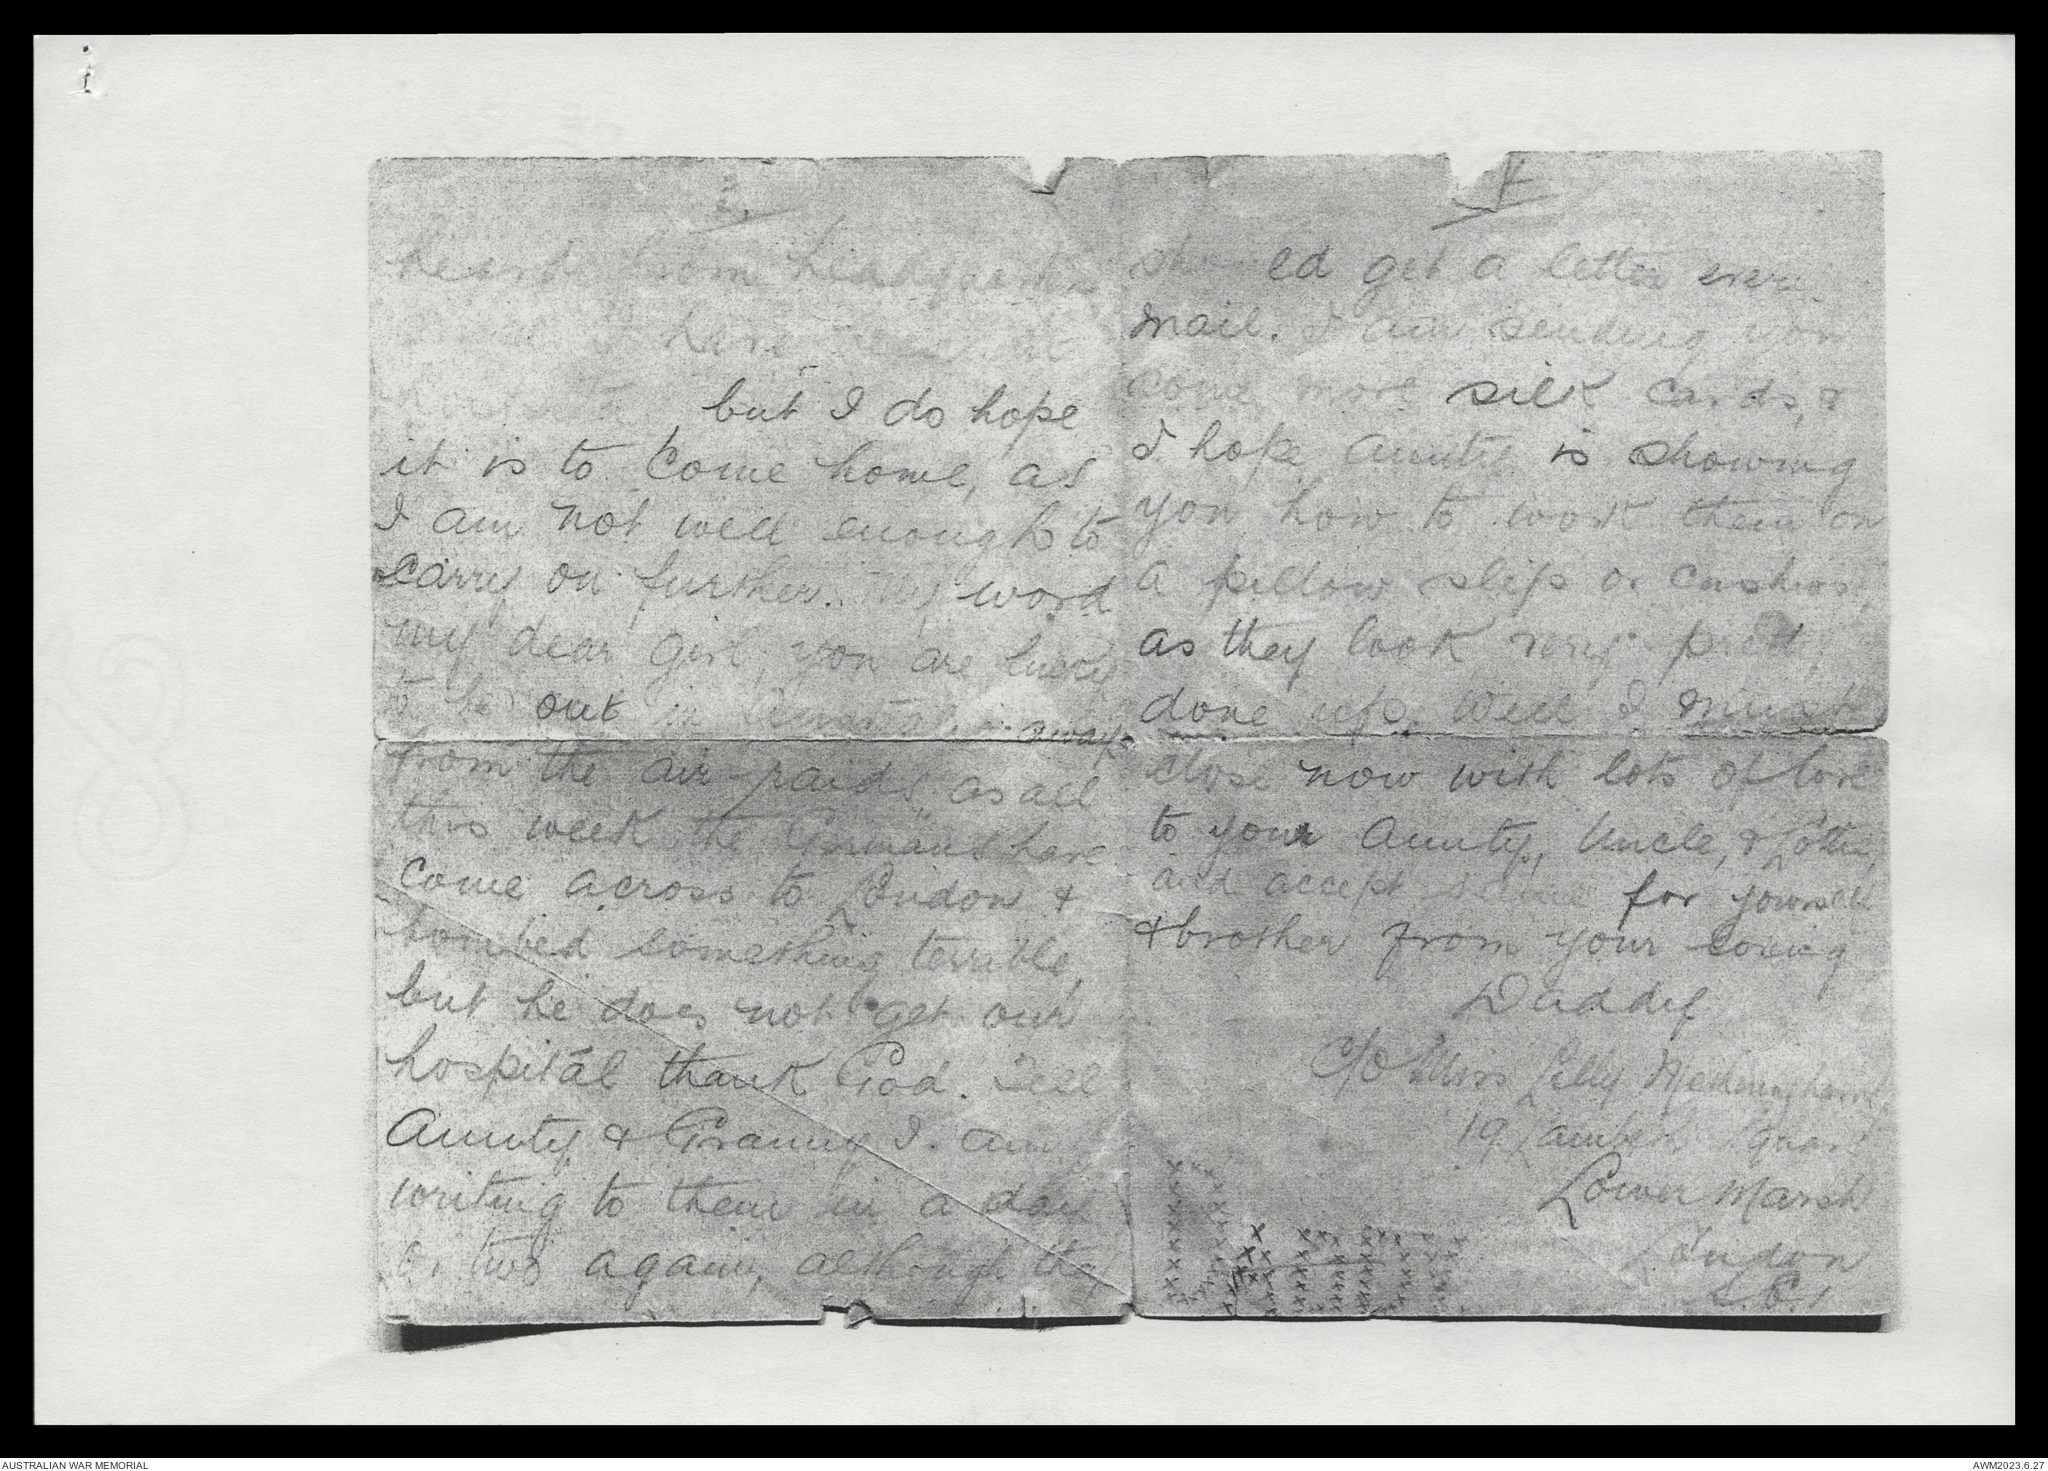 3.
heard from headquarters
have
but I do hope
it is to come home, as
I am not well enough to
carry on further. My word
my dear girl, you are lucky
to be out in Australia away
from the air-raids, as all
this week the Germans have
come across to London &
bombed something terrible,
but he does not get our
hospital thank God. Tell
Aunty & Granny I am
writing to them in a day
or two again, although they
4
should get a letter every
mail. I am sending you
some more silk cards, &
I hope Aunty is showing
you how to work them on
a pillow slip or cushions,
as they look very pretty
done up. Well I must
close now with lots of love
to your Aunty, Uncle, & Lottie,
and accept same for yourself
& brother from your loving
Daddy
C/O Miss Lilly
19 Lambeth Square
Lower Marsh
London
S.E.1
AUSTRALIAN WAR MEMORIAL
AWM2023.6.27